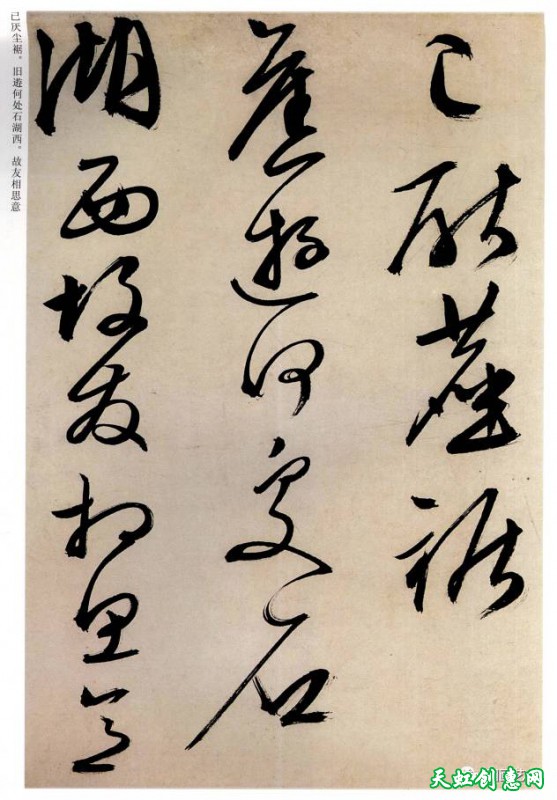 已厌尘裾。旧游何处石湖西。故友相思意
已厭塵裾
舊遊何處石
湖西故友相思意
天虹创意网